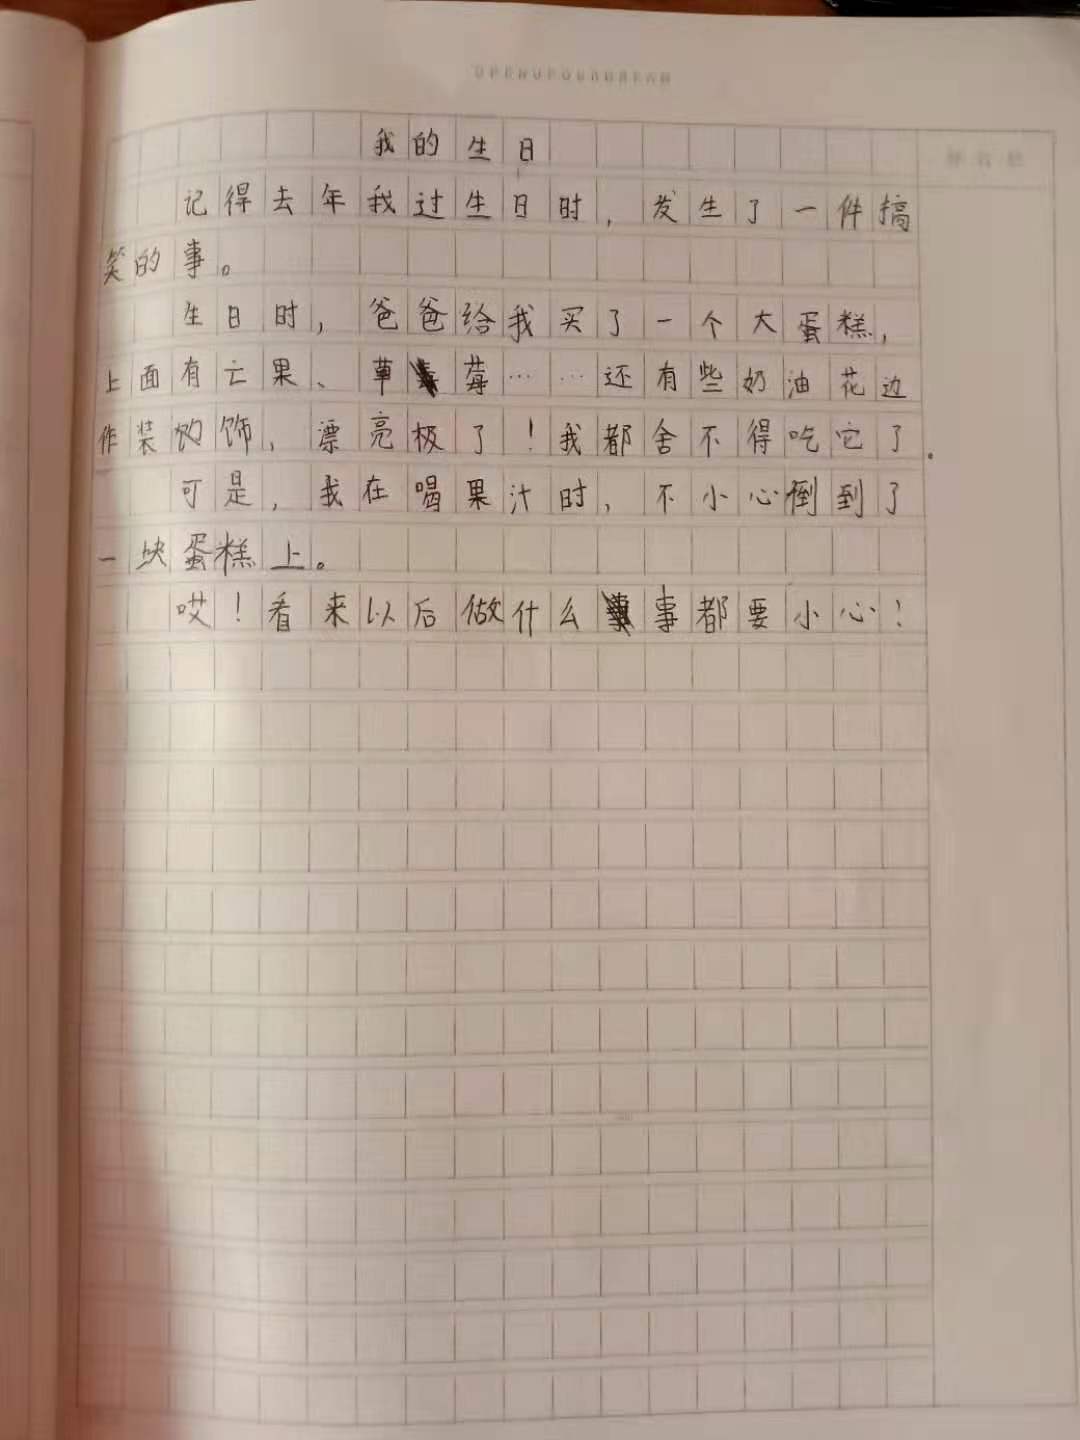 我的生日
记得去年我过生日时，发生了一件搞
笑的事。
生日时，爸爸给我买了一个大蛋糕，
上面有亡果、草莓……还有些奶油花边
作装饰，漂亮极了！我都舍不得吃它了。
可是，我在喝果汁时，不小心倒到了
一块蛋糕上。
哎！看来以后做什么事都要小心！